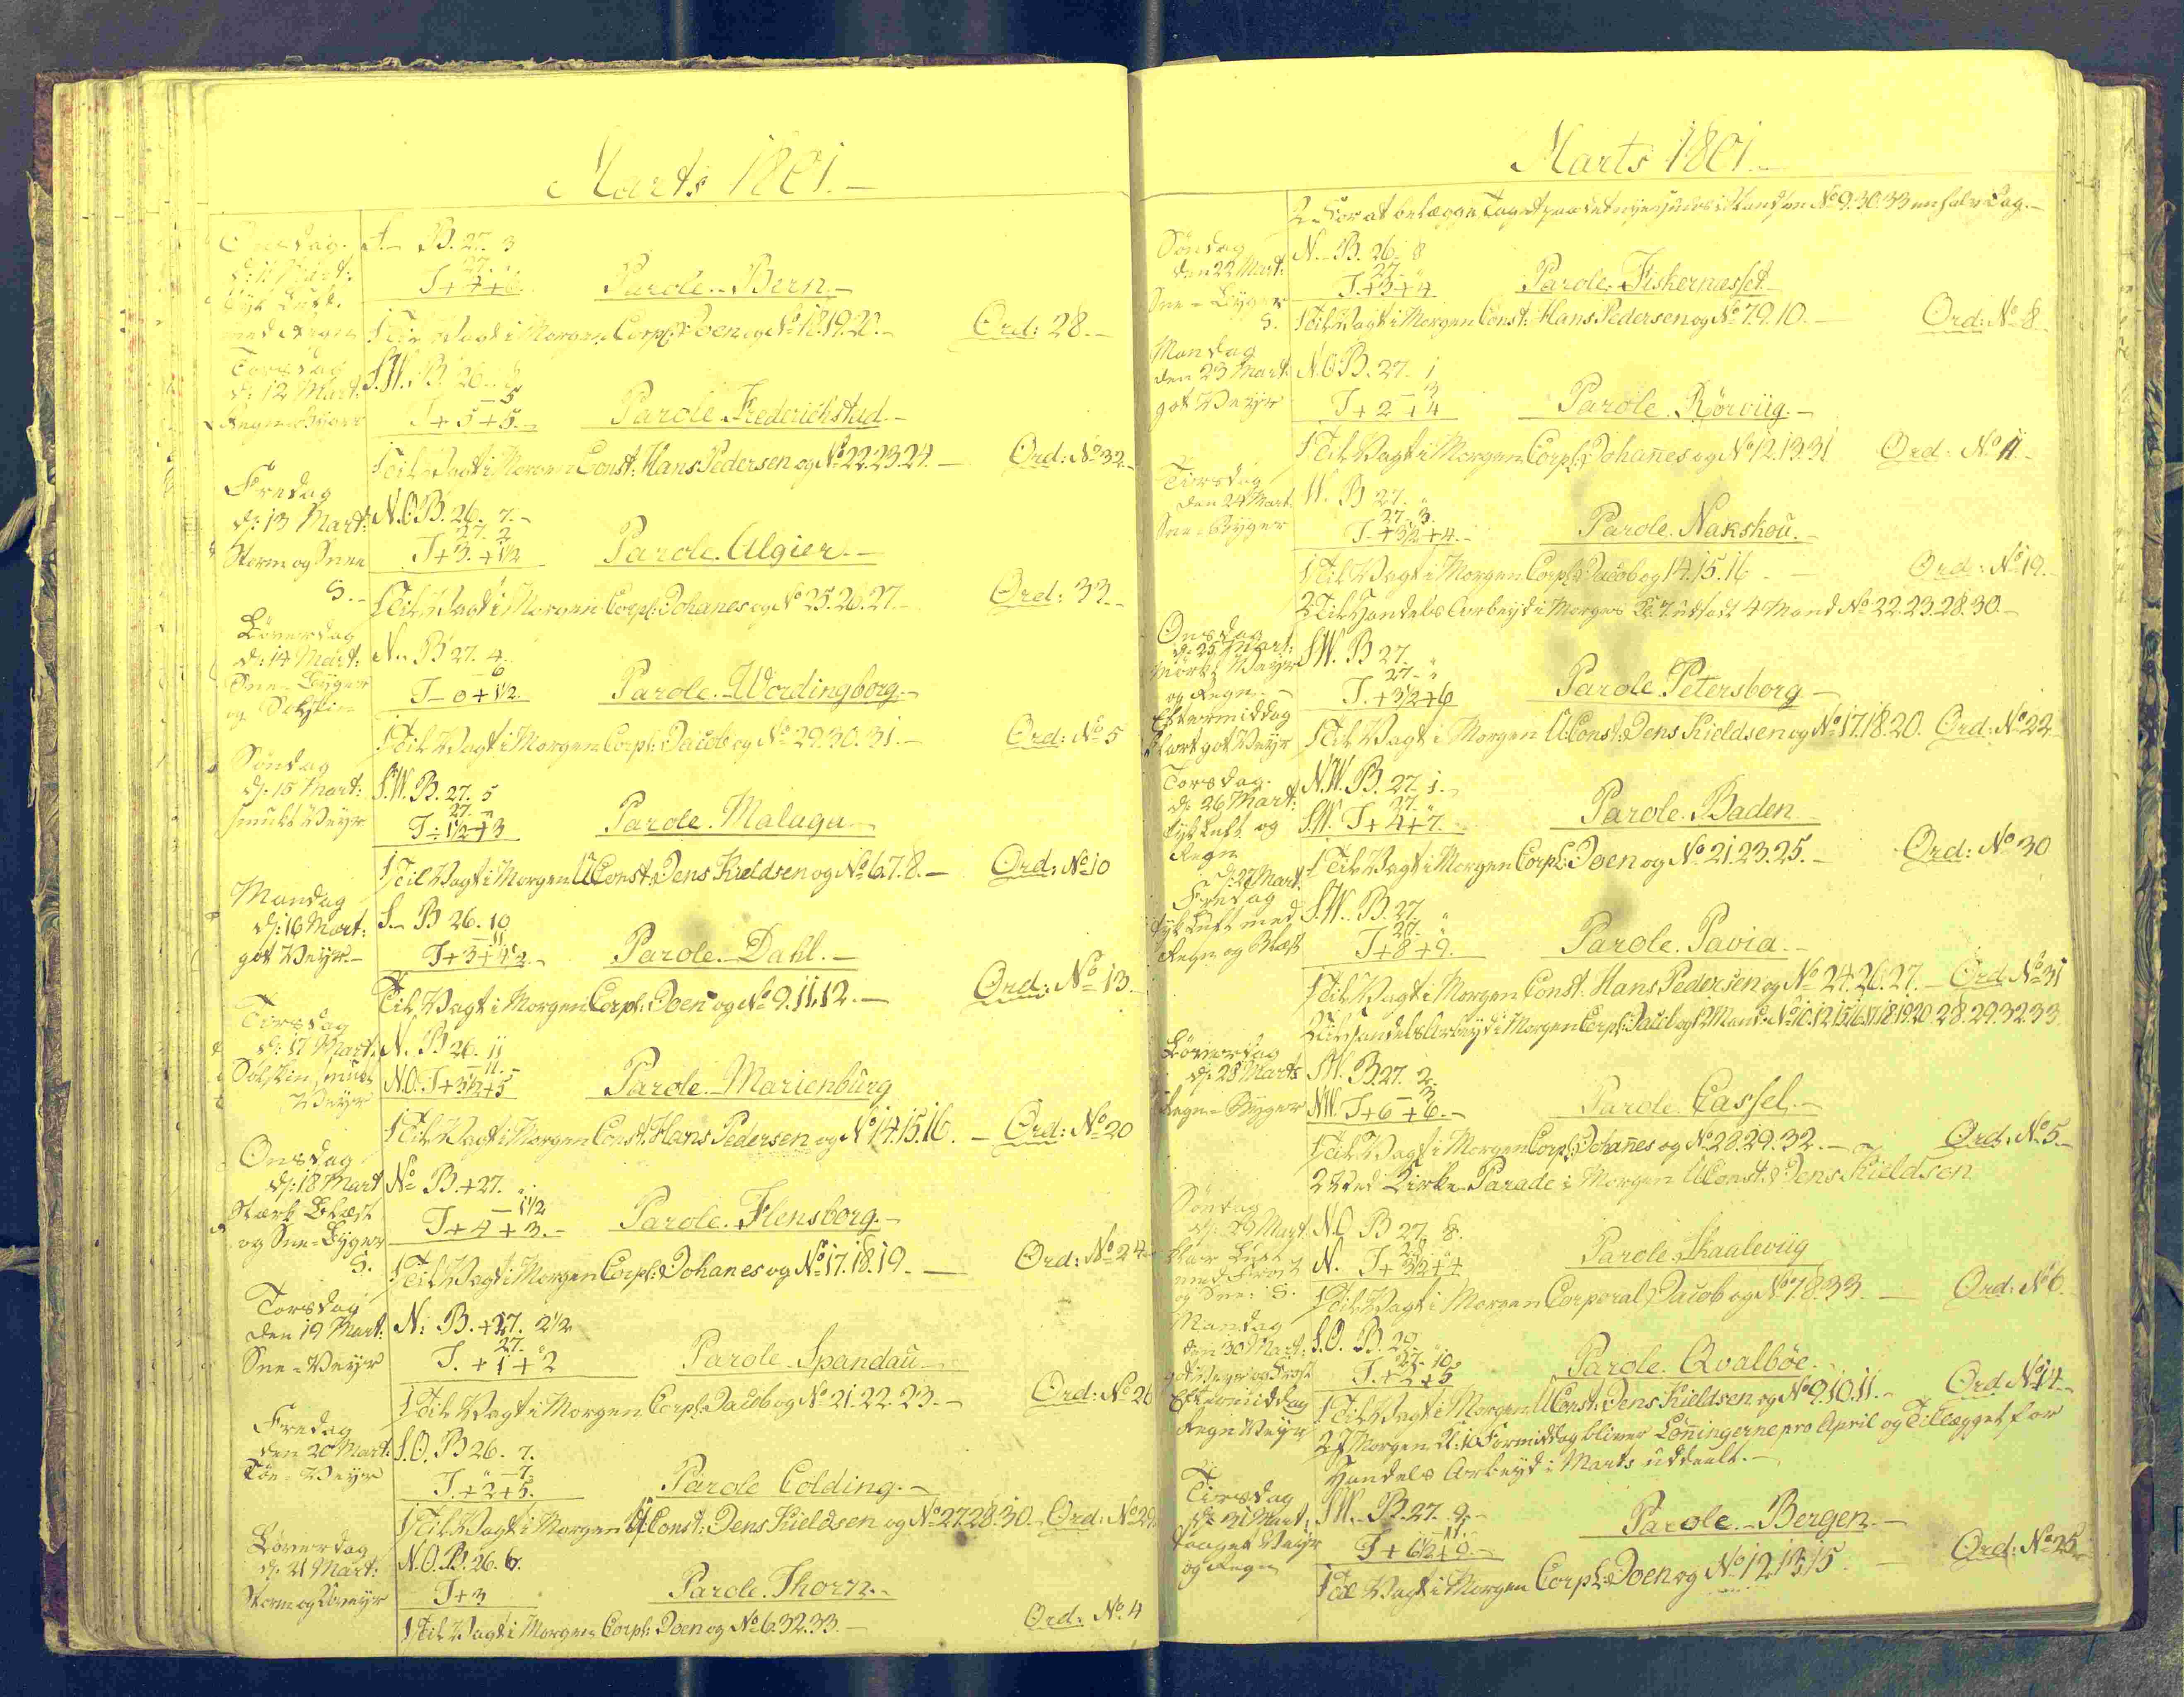 Marts 1801.-
Onsdag. S. B. 27. 3
d: 11 Mart: 27. "
Tyk Luft T+4+6. Parole.. Bern.-
med Regn 1 Til Vagt i Morgen Corpl: Joen og No 18.19.20.- Ord: 28.-
Torsdag S.W. B. 26.
d: 12 Mart: - 5
Regn T+5+5.- Parole Frederichstad.-
1 Til Vagt i Morgen Const: Hans Pedersen og No 22.23.24.- Ord: No 32.-
Fredag
d: 13 Mart: N.O B. 26. 7.-
27. 2
Storm og Snee T+3.+1½ Parole. Algier.-
S.- 1 Til Vagt i Morgen Corpl: Johanes og No 25.26.27.- Ord: 33.-
Löverdag
d: 14 Mart: N.. B 27. 4.
Snee-Byger - 6
og Solskin T-0+1½. Parole.-Wordingborg.-
1 Til Vagt i Morgen Corpl: Jacob og No 29.30.31.- Ord: No 5
Söndag
d: 15 Mart: S.W. B. 27. 5
27. "
smukt Veyr T÷1½+3 Parole. Malaga.-
1 Til Vagt i Morgen U.Const: Jens Kieldsen og No 6.7.8.- Ord: No 10
Mandag
d: 16 Mart: S.- B 26. 10
- 11
got Veyr.- T+3+4½.- Parole.-Dahl.-
Til Vagt i Morgen Corpl: Joen og No 9.11.12.- Ord: No 13.-
Tirsdag
d: 17 Mart: N. B 26. 11
- 11.-
Solskin smukt N.O. T+3½+5 Parole.-Marienburg
Veyr
1 Til Vagt i Morgen Const: Hans Pedersen og No 14.15.16.- Ord: No 20
Onsdag
d: 18 Mart No B.+27. "
Stærk Blæst - 1½
og Snee-Byger T+4+3.- Parole. Flensborg.-
S. 1 Til Vagt i Morgen Corpl: Johanes og No 17.18.19.- Ord: No 24
Torsdag
den 19 Mart: N: B.+27. 2½
27. "
Snee-Veyr T.+1+2 Parole-Spandau-
1 Til Vagt i Morgen Corpl: Jacob og No 21.22.23.- Ord: No 26
Fredag
den 20 Mart: S.O. B 26. 7.
Töe-Veyr - 7.
T.+2+5. Parole Colding.-
1 Til Vagt i Morgen U.Const: Jens Kieldsen og No 27.28.30 - Ord: No 29
Löverdag
d: 21 Mart: N.O. B. 26. 6.
Storm og T+3 Parole. Thorn.-
1 Til Vagt i Morgen Corpl: Joen og No 6.32.33.- Ord: No. 4
Marts 1801.-
2 For at belægge Taget paa det nye No 9.30.33 en halv Dag.-
Söndag N.- B. 26. 8
den 22 Mart: 27. "
Snee-Byger T.+3+4 Parole.-Fiskernæsset-
S. 1 Til Vagt i Morgen Const: Hans Pedersen og No 7.9.10.- Ord: No 8
Mandag
den 23 Mart: N.O B. 27. 1
- 3
got Veyr T+2+4 Parole. Rörviig.-
1 Til Vagt i Morgen Corpl: Johañes og No 12.13.31 Ord: No 11.-
Tirsdag
den 24 Mart: W. B 27. "
27. 3.
Snee-Byger T+3½+4.- Parole. Nakskou.-
1 Til Vagt i Morgen Corpl: Jacob og 14.15.16 Ord: No 19.-
2 Til Handels Arbeyd i Morgen Kl. 7 4 Mand No 22.23.28.30.-
Onsdag
d: 25 Mart: S.W. B 27. "
mörkt Veyr 27. "
og Regn.- T.+3½+6 Parole. Petersborg-
Eftermiddag
klart got Veyr 1 Til Vagt i Morgen U.Const: Jens Kieldsen og No 17.18.20. Ord: No 22
Torsdag.
d: 26 Mart: N.W. B. 27. 1.-
27. "
Tyk Luft og S.W. T+4+7.- Parole. Baden.
Regn 1 Til Vagt i Morgen Corpl: Joen og No 21.23.25.- Ord: No 30
d: 27 Mart:
Fredag
Tyk Luft med S.W. B. 27. "
27. "
Regn og Blæst T+8+9. Parole. Pavia.-
1 Til Vagt i Morgen Const: Hans Pedersen og No 24.26.27.- Ord: No 31
2 Til Handels Arbeyd i Morgen Corpl: Jacob og 12 Mand: No 10.12.15.16.17.18.19.20.28.29.32.33
Löverdag
d: 28 Marts S.W. B. 27. 2.
- 3
Regn-Byger N.W. T+6+6.- Parole. Cassel.-
1 Til Vagt i Morgen Corpl: Johañes og No 28.29.32.- Ord: No 5.-
2 Ved Kirke-Parade i Morgen U.Const: Jens Kieldsen
Söndag
d: 29 Mart: N.O B 27. 8.
klar Luft
med Frost N. T+3½+4 Parole. Skaaleviig
og Snee: S. 1 Til Vagt i Morgen Corporal Jacob og No 7.8.33.- Ord: No 6
Mandag
den 30 Mart: S.O. B. 29.
27. 10.
got Veyr og Frost T.+2+5 Parole. Qvalböe.
Eftermiddag 1 Til Vagt i Morgen U.Const: Jens Kieldsen og No 9.10.11.- Ord No 14.-
Regn Veyr 2 I Morgen Kl: 10 Formiddag bliver Löñingerne pro April og Tillægget for
Handels Arbeyd i Marts uddeelt.-
Tirsdag
d: 31 Mart: S.W.. B. 27. 9.-
- 11.-
taaget Veyr T+6½+9.- Parole.-Bergen.-
og Regn
1 Til Vagt i Morgen Corpl: Joen og No 12.13.15.- Ord: No 25